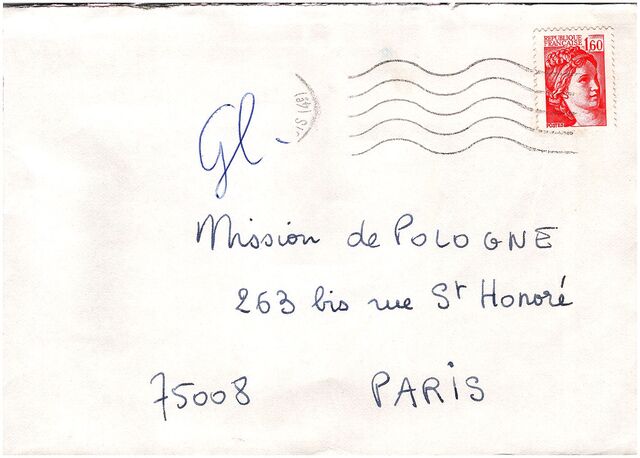 REPUBLIQUE
FRANCAISE
1,60
POSTES
Gl -
Mission de POLOGNE
263 bis rue St Honoré
75008 PARIS